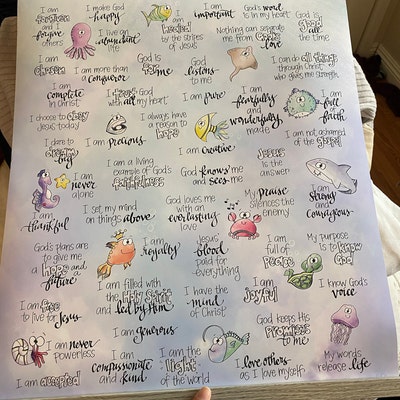 I am
forgiven
and I
forgive
others
I make God
happy
I live an
abundant
life
I am
healed
by the stripes
of Jesus
I am
important
God's word
is in my heart
Nothing can separate
me from God's
love
God is
good
all the
time
I am
chosen
I am more than
a conqueror
God is
for me
God
listens
to me
I can do all things
through Christ
who gives me strength
I am
complete
in Christ
I trust God
with all my heart
I am pure
I am
fearfully
and
wonderfully
made
I am
full
of
faith
I choose to obey
Jesus today
I am precious
I always have
a reason to
hope
I am not ashamed
of the gospel
I dare to
dream
big
I am creative
I am
never
alone
I am a living
example of God's
faithfulness
God knows me
and sees me
Jesus
is the
answer
I am
strong
and
courageous
I am
thankful
I set my mind
on things above
God loves me
with an
everlasting
love
My praise
silences the
enemy
God's plans are
to give me
a hope and
a future
I am
royalty
Jesus'
blood
paid for
everything
I am
full of
peace
My purpose
is to know
God
I am free
to live for Jesus
I am filled with
the Holy Spirit
and led by Him
I have the
mind
of Christ
I am
joyful
I know God's
voice
I am never
powerless
I am generous
God keeps His
promises
to me
I am accepted
I am
compassionate
and kind
I am the
light
of the world
I love others
as I love myself
My words
release life